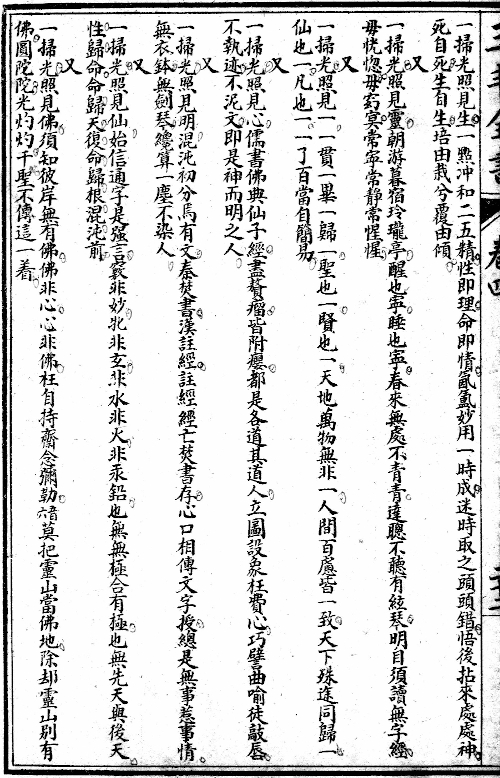 一掃光照見生一點冲和二五精性即理命即情氤氳妙用一時成迷時取之頭頭錯悟後拈來處處神
死自死生自生培由栽兮覆由傾
又
一掃光照見靈朝游暮宿玲瓏亭醒也寧睡也寧春來無處不青青達聰不聽有絃琴明目須讀無字經
毋恍惚毋窈冥常寧常靜常惺惺
又
一掃光照見一一貫一畢一歸一聖也一賢也一天地萬物無非一人間百慮皆一致天下殊途同歸一
仙也一凡也一一了百當自簡易
又
一掃光照見心儒書佛典仙子經盡贅瘤皆附癭都是各道其道人立圖設象枉費心巧譬曲喻徒敲唇
不執迹不泥文即是神而明之人
又
一掃光照見明混沌初分焉有文秦焚書漢註經註經經亡焚書存心口相傳文字授總是無事惹事情
無衣鉢無劍琴纔算一塵不染人
又
一掃光照見仙始信通字是強言裏非妙牝非玄非水非火非汞鉛也無無極合有極也無先天與後天
性歸命命歸天復命歸根混沌前
又
一掃光照見佛須知彼岸無有佛佛非心心非佛枉自持齋念彌勒諳莫把靈山當佛地除却靈山別有
佛圓陀陀光灼灼千聖不傳這一着
卷四